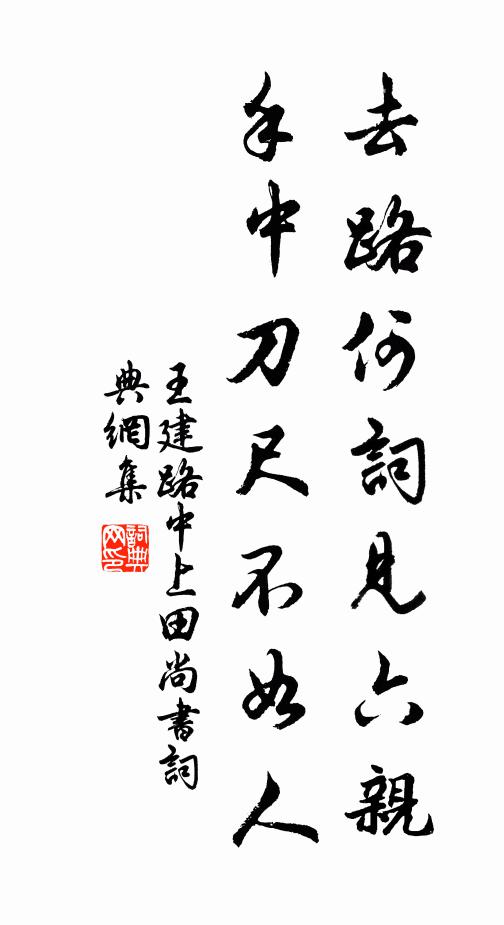 去路何詞見六親
手中刀尺不如人
王建路中上田尚書詞
典網集
詞典
网印